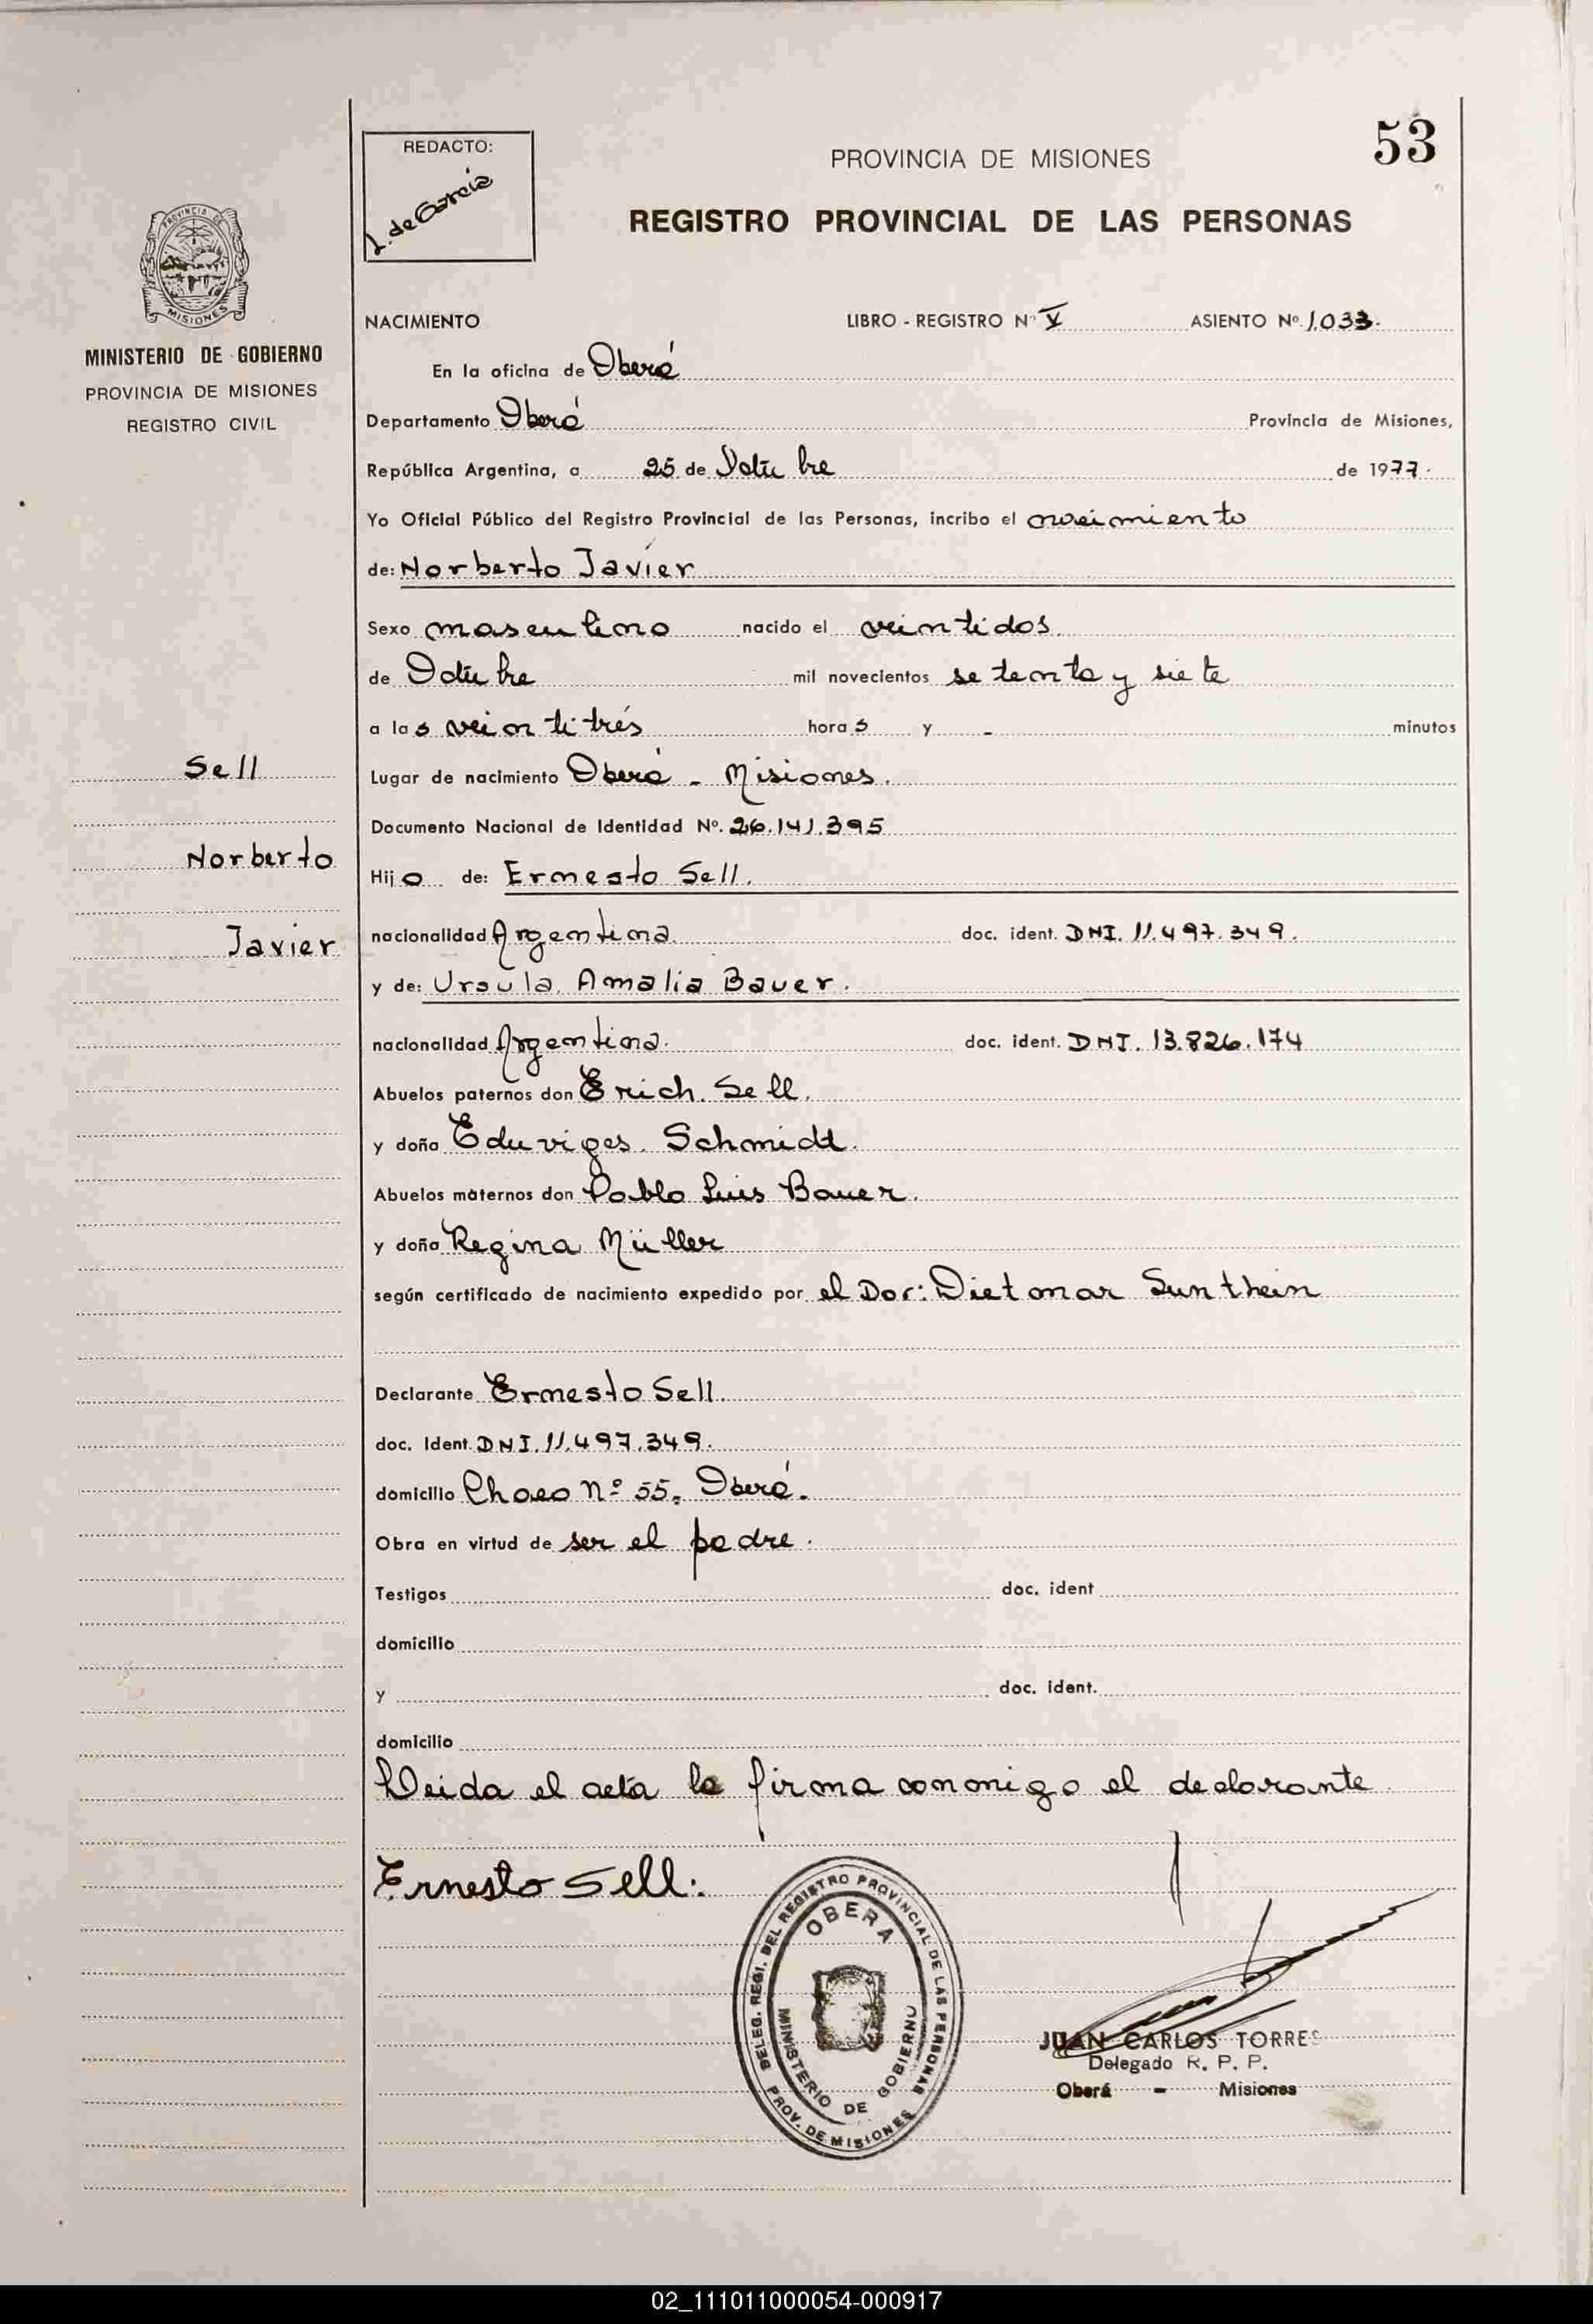 53
REDACTO:
J. de García
PROVINCIA DE MISIONES
REGISTRO PROVINCIAL DE LAS PERSONAS
PROVINCIA DE
MISIONES
MINISTERIO DE GOBIERNO
PROVINCIA DE MISIONES
REGISTRO CIVIL
NACIMIENTO LIBRO - REGISTRO Nº V ASIENTO Nº 1.033.
En la oficina de Oberá
Departamento Oberá Provincia de Misiones,
República Argentina, a 25 de Octubre de 1977.
Yo Oficial Público del Registro Provincial de las Personas, incribo el nacimiento
de: Norberto Javier
Sexo masculino nacido el veintidos
de Octubre mil novecientos setenta y siete
a las veintitrés horas y - minutos
Lugar de nacimiento Oberá - Misiones.
Documento Nacional de Identidad Nº. 26.141.395
Hijo de: Ernesto Sell.
nacionalidad Argentina. doc. ident. DNI. 11.497.349.
y de: Ursula Amalia Bauer.
nacionalidad Argentina. doc. ident. DNI. 13.826.174
Abuelos paternos don Erich Sell.
y doña Eduviges Schmidt.
Abuelos maternos don Pablo Luis Bauer.
y doña Regina Müller
según certificado de nacimiento expedido por el Dor: Dietmar Sunthein
Declarante Ernesto Sell.
doc. Ident. DNI. 11.497.349.
domicilio Chaco Nº 55. Oberá.
Obra en virtud de ser el padre.
Testigos doc. ident
domicilio
y doc. ident.
domicilio
Leida el acta la firma conmigo el declarante
Sell
Norberto
Javier
Ernesto Sell.
DELEG. REGI. DEL REGISTRO PROVINCIAL DE LAS PERSONAS
OBERA
MINISTERIO DE GOBIERNO
PROV. DE MISIONES
JUAN CARLOS TORRES
Delegado R. P. P.
Oberá - Misiones
02_111011000054-000917